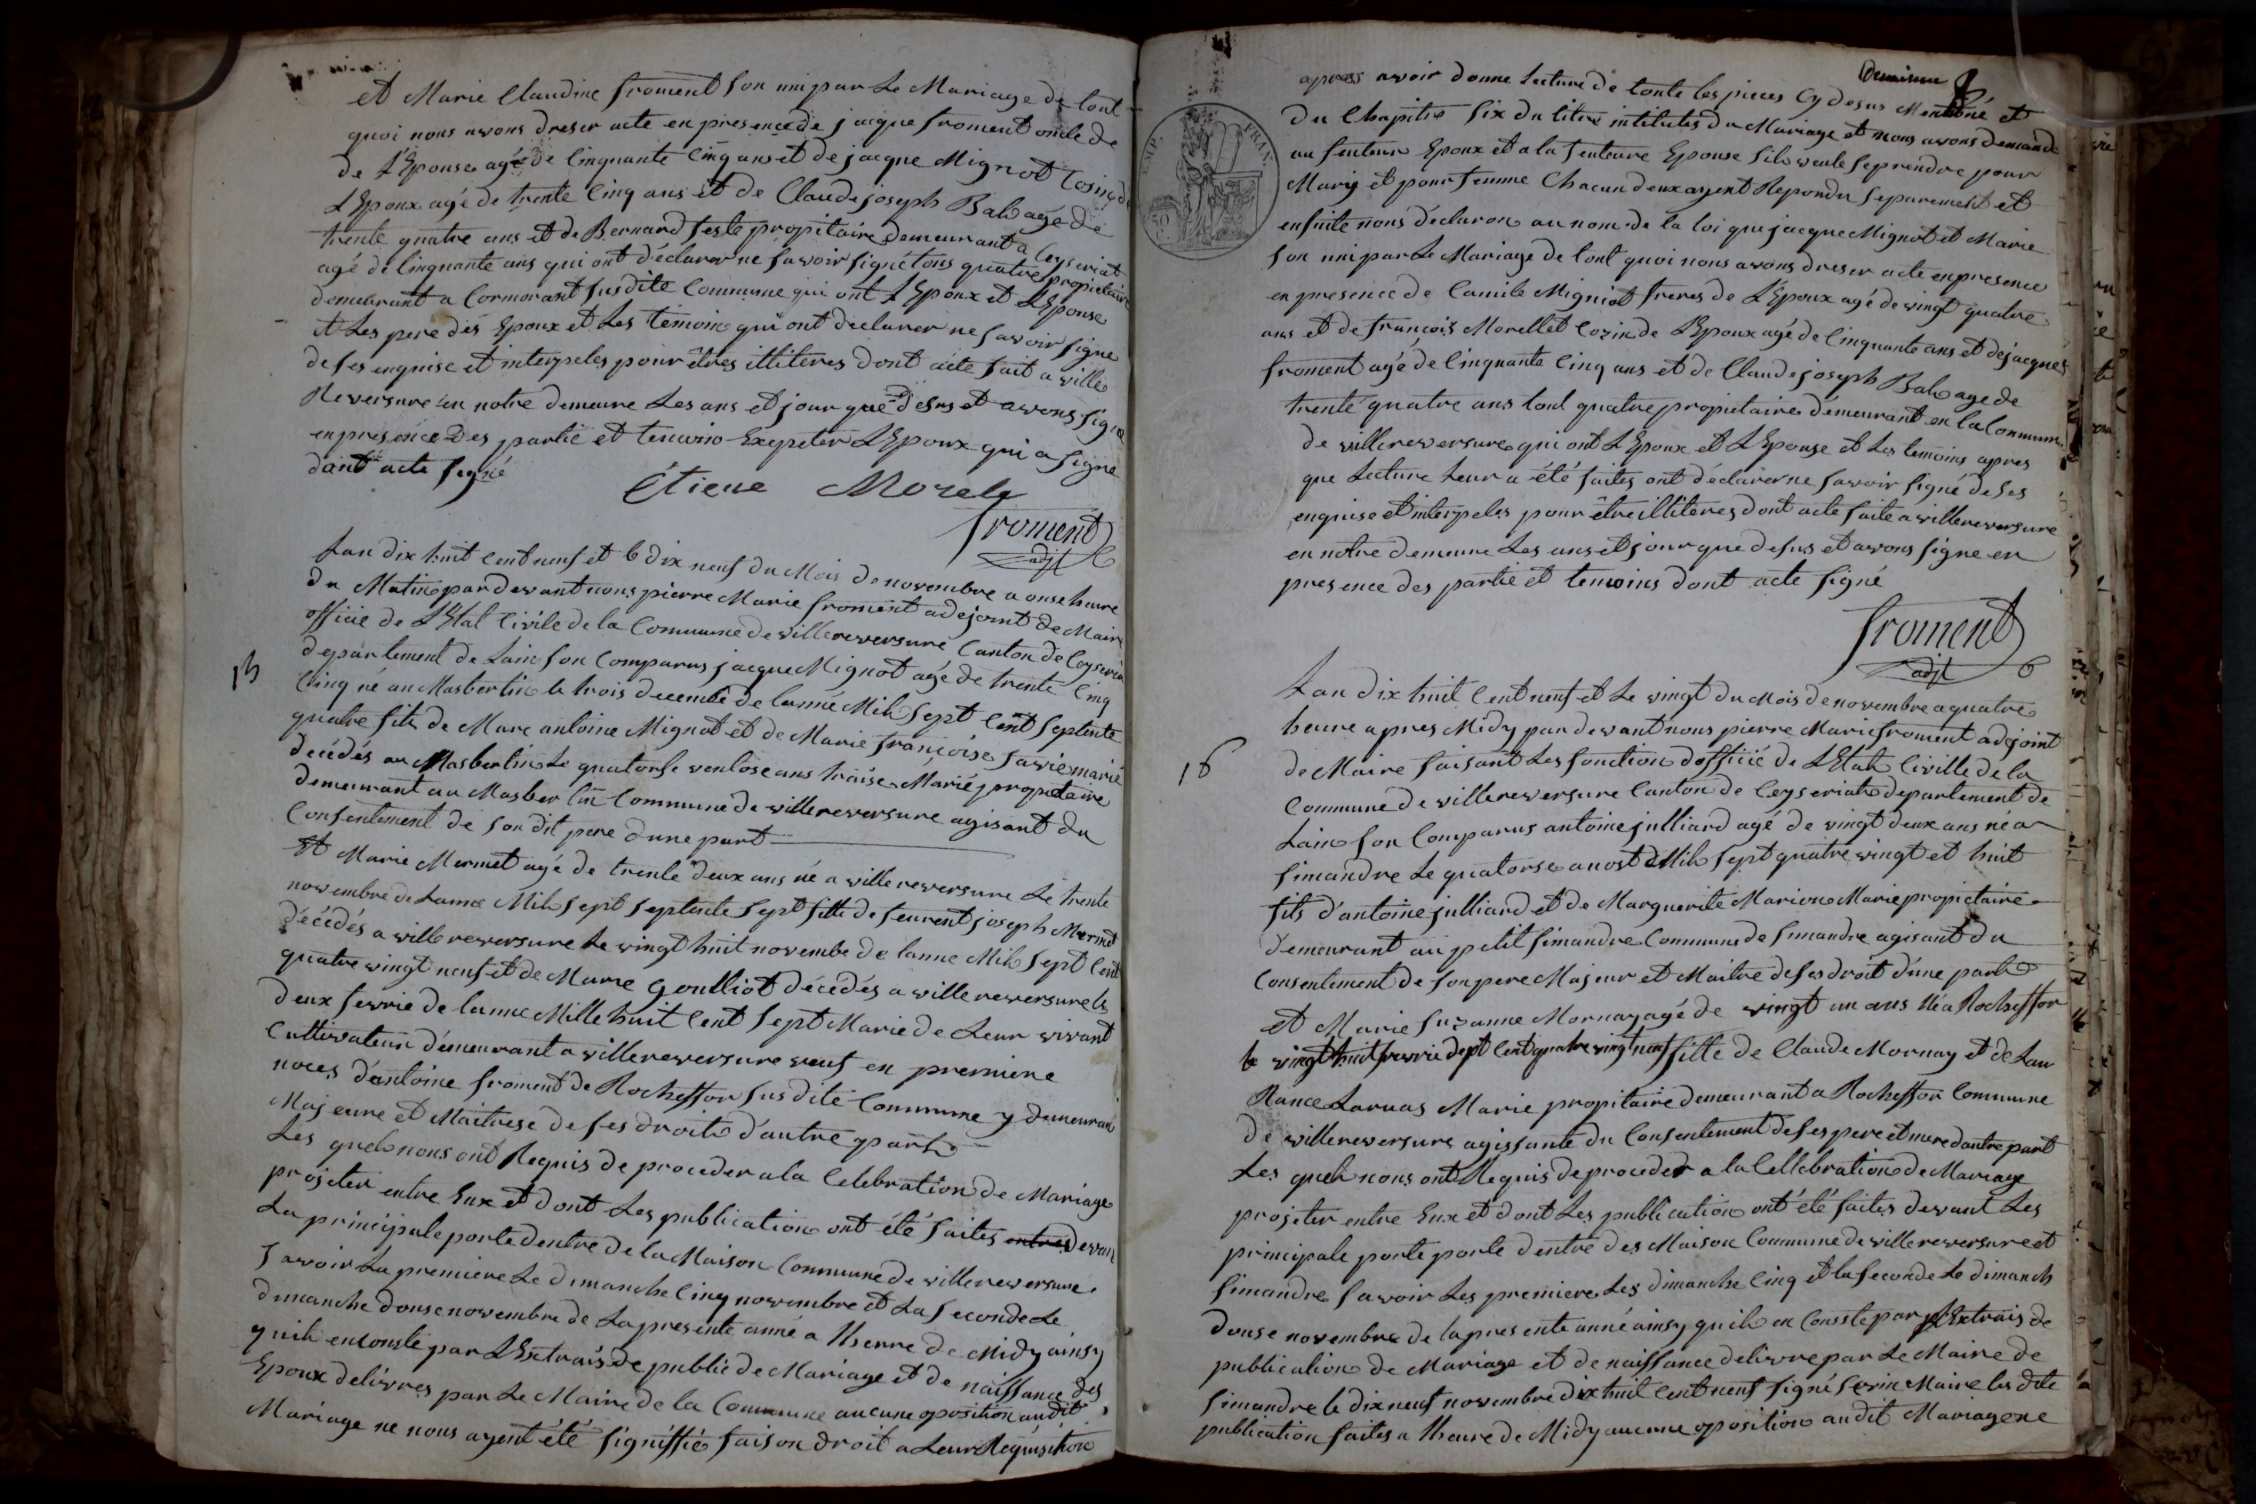 et Marie Claudine froment son uni par Le Mariage de tout
quoi nous avons dreser acte en presence de jacque froment oncle de
de L'Epouse agé de Cinquante Cinq ans et de jacque Mignot Cosin de
L'Epoux agé de trente Cinq ans et de Claude joseph Balv agé de
trente quatre ans et de Bernard feste propitaire demeurant a Ceyseriat
agé de Cinquante ans qui ont déclarer né savoir signé tous quatre propietaire
demeurant a Cormorant susdite Commune qui ont L'Epoux et L'Epouse
et Les pere des Epoux et Les temoin qui ont declarer ne savoir signe
de ses enquise et interpeles pour êtres illiteres dont acte fait a ville
Reversure en notre demeure Les ans et jour que desus et avons signe
en presence des partie et temoins Exepeter L'Epoux qui a signe
dont acte signé
étiene Morel
froment
adjt
Lan dix huit Cent neuf et le dix neuf du Mois de novembre a onse heure
du Matin par devant nous pierre Marie froment adejoint de Maire
officie de L'Etat Civile de la Commune de villereversure Canton de Ceyseria
departement de Lain son Comparus jacque Mignot agé de trente Cinq
13
Cinq né au Masbertin le trois decembe de lanné Mil sept Cent septente
quatre fils de Marc antoine Mignot et de Marie françoise favie marié
decédés au Masbertin Le quatorse ventose ans traise Marié propietaire
demeurant au Masber tin Commune de villereversure agisant du
Consentement de son dit pere dune part
et Marie Mermet agé de trente deux ans né a villereversure Le trente
novembre de Lanne Mil sept septente sept fille de feurent joseph Mermet
décédés a villereversure Le vingt huit novembe de lanne Mil sept Cent
quatre vingt neuf et de Marie Goulliot décédés a villereversure le
deux fevrie de lanne Mille huit Cent sept Marie de Leur vivant
Cultivateur demeurant a villereversure veuf en premiere
noces d'antoine froment de Rocheffor susdite Commune y demeuran
Majeure et Maitrese de ses droits d'autre part
Les quel nous ont Requis de proceder a la Celebration de Mariage
projeter entre Eux et dont Les publication ont été faites entres devan
La principale porte dentre de la Maison Commune de villereversure
savoir La premiere Le dimanche Cinq novembre et La seconde Le
dimanche douse novembre de La presente anné a lheure de Midy ainsy
quil en Conste par L'Extrais de public de Mariage et de naissance des
Epoux delivres par Le Maire de la Commune aucune oposition audit
Mariage ne nous ayent été signiffié faison droit a Leur Requisition
Deuxieme
apres avoir donne Lecture de toute les pieces Cy desus Mentioné et
du Chapitre six du titre intitules du Mariage et nous avons demandé
au futeur Epoux et a la futeure Epouse sil veule se prendre pour
Mary et pour femme Chacun deux ayent Repondu separement et
ensuite nous déclaron au nom de la loi que jacque Mignot et Marie
son uni par Le Mariage de tout quoi nous avons dreser acte en presence
en presence de Camile Migniot freres de L'Epoux agé de vingt quatre
ans et de françois Morellet Cozin de L'Epoux agé de Cinquante ans et de jacques
froment agé de Cinquante Cinq ans et de Claude joseph Balv age de
trente quatre ans tout quatre propietaire demeurant en la Commune
de villereversure qui ont L'Epoux et L'Epouse et Les temoins apres
que Lecture Leur a été faites ont déclairer ne savoir signé de ses
enquise et interpeles pour être illiteres dont acte faite a villereversure
en notre demeure Les ans et jour que desus et avons signe en
presence des partie et temoins dont acte signé
froment
adjt
Lan dix huit Cent neuf et Le vingt du Mois de novembre a quatre
heure apres Midy par devant nous pierre Marie froment adejoint
16
de Maire faisant Les fonction dofficié de L'Etat Civille de la
Commune de villereversure Canton de Ceyseriat departement de
Lain son Comparus antoine julliard agé de vingt deux ans né a
simandre Le quatorse auost Mil sept quatre vingt et huit
fils d'antoine julliard et de Marguerite Marion Marie propietaire
demeurant au petit simandre Commune de simandre agisant du
Consentement de son pere Majeur et Maitre de ses droit d'une part
et Marie suzanne Mornay agé de vingt un ans né a Rocheffor
le vingt huit fevrie sept Cent quatre vingt neuf fille de Claude Mornay et de Lau
Rance Laruas Marie propitaire demeurant a Rocheffor Commune
de villereversure agissante du Consentement de ses pere et mere dautre part
Les quel nous ont Requis de proceder a la Cellebration de Mariage
projeter entre Eux et dont Les publication ont été faites devant Les
principale porte porte dentré des Maison Commune de villereversure et
simandre savoir Les premiere Les dimanche Cinq et la seconde Le dimanch
douse novembre de la presente anné ainsy quil en Consste par L'Extrais de
publication de Mariage et de naissance delivre par Le Maire de
simandre le dix neuf novembre dix huit Cent neuf signé Maire les dite
publication faites a lheure de Midy aucune oposition au dit Mariage ne